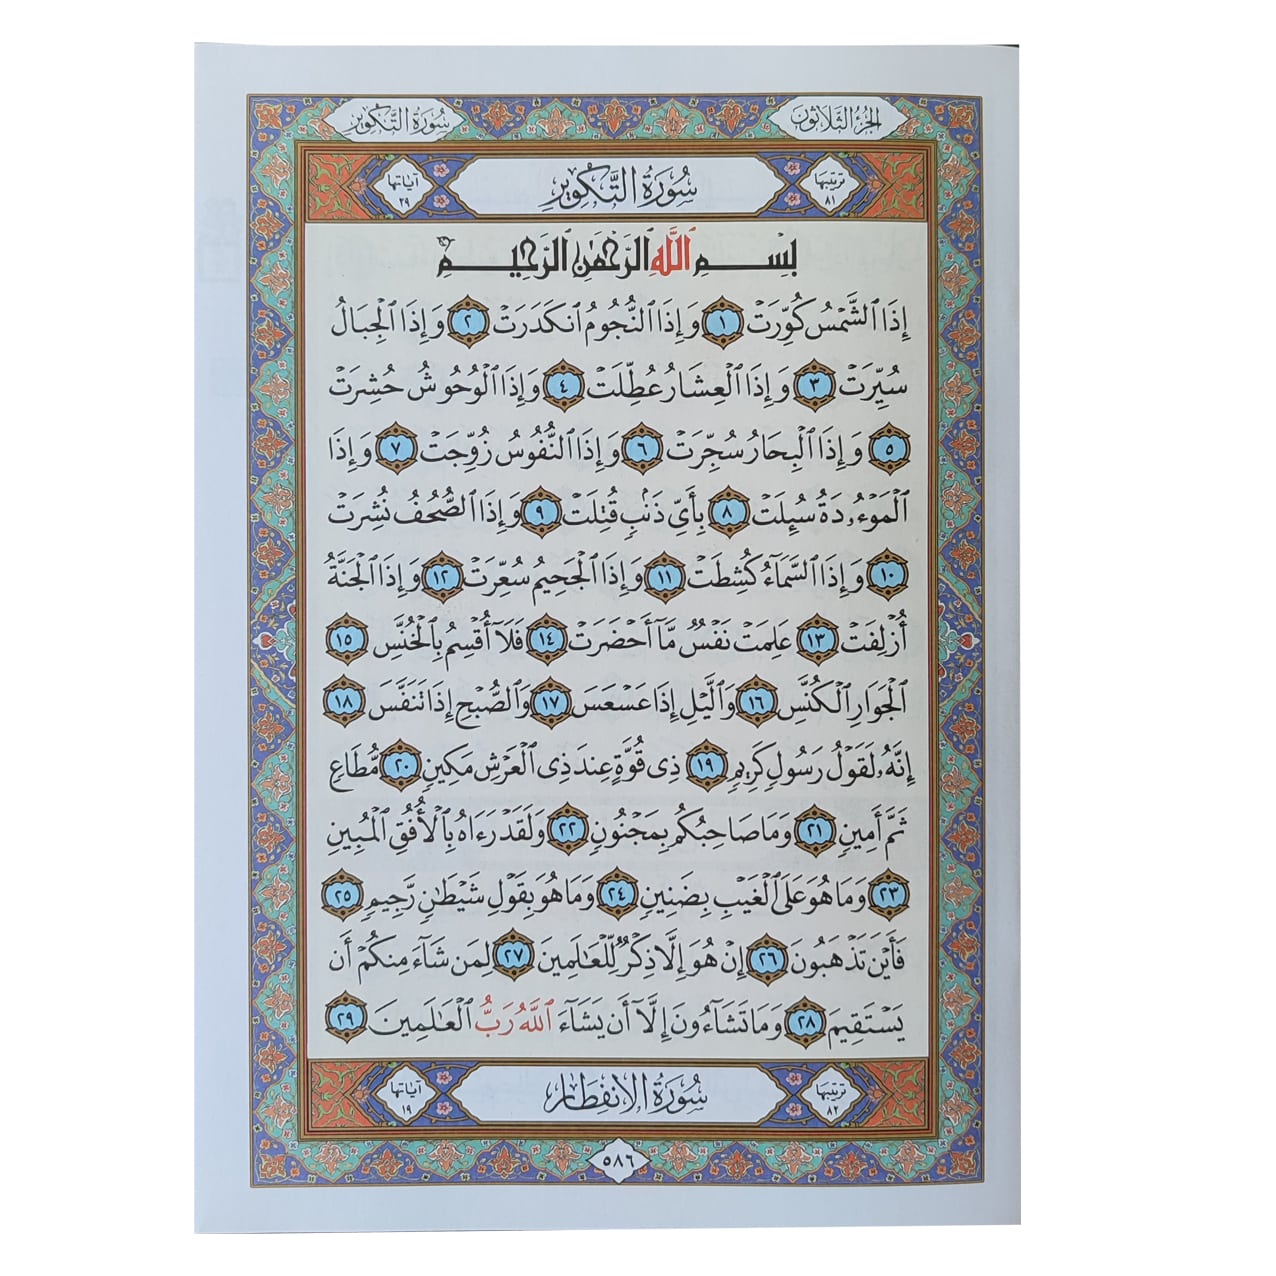 الجزء الثلاثون سورة التكوير
ترتيبها ٨١ سُورَةُ التَّكْوِيرِ آياتها ٢٩
بِسْمِ ٱللَّهِ ٱلرَّحْمَٰنِ ٱلرَّحِيمِ
إِذَا ٱلشَّمْسُ كُوِّرَتْ ١ وَإِذَا ٱلنُّجُومُ ٱنكَدَرَتْ ٢ وَإِذَا ٱلْجِبَالُ
سُيِّرَتْ ٣ وَإِذَا ٱلْعِشَارُ عُطِّلَتْ ٤ وَإِذَا ٱلْوُحُوشُ حُشِرَتْ
٥ وَإِذَا ٱلْبِحَارُ سُجِّرَتْ ٦ وَإِذَا ٱلنُّفُوسُ زُوِّجَتْ ٧ وَإِذَا
ٱلْمَوْءُۥدَةُ سُئِلَتْ ٨ بِأَيِّ ذَنۢبٍ قُتِلَتْ ٩ وَإِذَا ٱلصُّحُفُ نُشِرَتْ
١٠ وَإِذَا ٱلسَّمَآءُ كُشِطَتْ ١١ وَإِذَا ٱلْجَحِيمُ سُعِّرَتْ ١٢ وَإِذَا ٱلْجَنَّةُ
أُزْلِفَتْ ١٣ عَلِمَتْ نَفْسٌ مَّآ أَحْضَرَتْ ١٤ فَلَآ أُقْسِمُ بِٱلْخُنَّسِ ١٥
ٱلْجَوَارِ ٱلْكُنَّسِ ١٦ وَٱلَّيْلِ إِذَا عَسْعَسَ ١٧ وَٱلصُّبْحِ إِذَا تَنَفَّسَ ١٨
إِنَّهُۥ لَقَوْلُ رَسُولٍ كَرِيمٍ ١٩ ذِى قُوَّةٍ عِندَ ذِى ٱلْعَرْشِ مَكِينٍ ٢٠ مُّطَاعٍ
ثَمَّ أَمِينٍ ٢١ وَمَا صَاحِبُكُم بِمَجْنُونٍ ٢٢ وَلَقَدْ رَءَاهُ بِٱلْأُفُقِ ٱلْمُبِينِ
٢٣ وَمَا هُوَ عَلَى ٱلْغَيْبِ بِضَنِينٍ ٢٤ وَمَا هُوَ بِقَوْلِ شَيْطَٰنٍ رَّجِيمٍ ٢٥
فَأَيْنَ تَذْهَبُونَ ٢٦ إِنْ هُوَ إِلَّا ذِكْرٌ لِّلْعَٰلَمِينَ ٢٧ لِمَن شَآءَ مِنكُمْ أَن
يَسْتَقِيمَ ٢٨ وَمَا تَشَآءُونَ إِلَّآ أَن يَشَآءَ ٱللَّهُ رَبُّ ٱلْعَٰلَمِينَ ٢٩
ترتيبها ٨٢ سُورَةُ الانفِطَارِ آياتها ١٩
٥٨٦